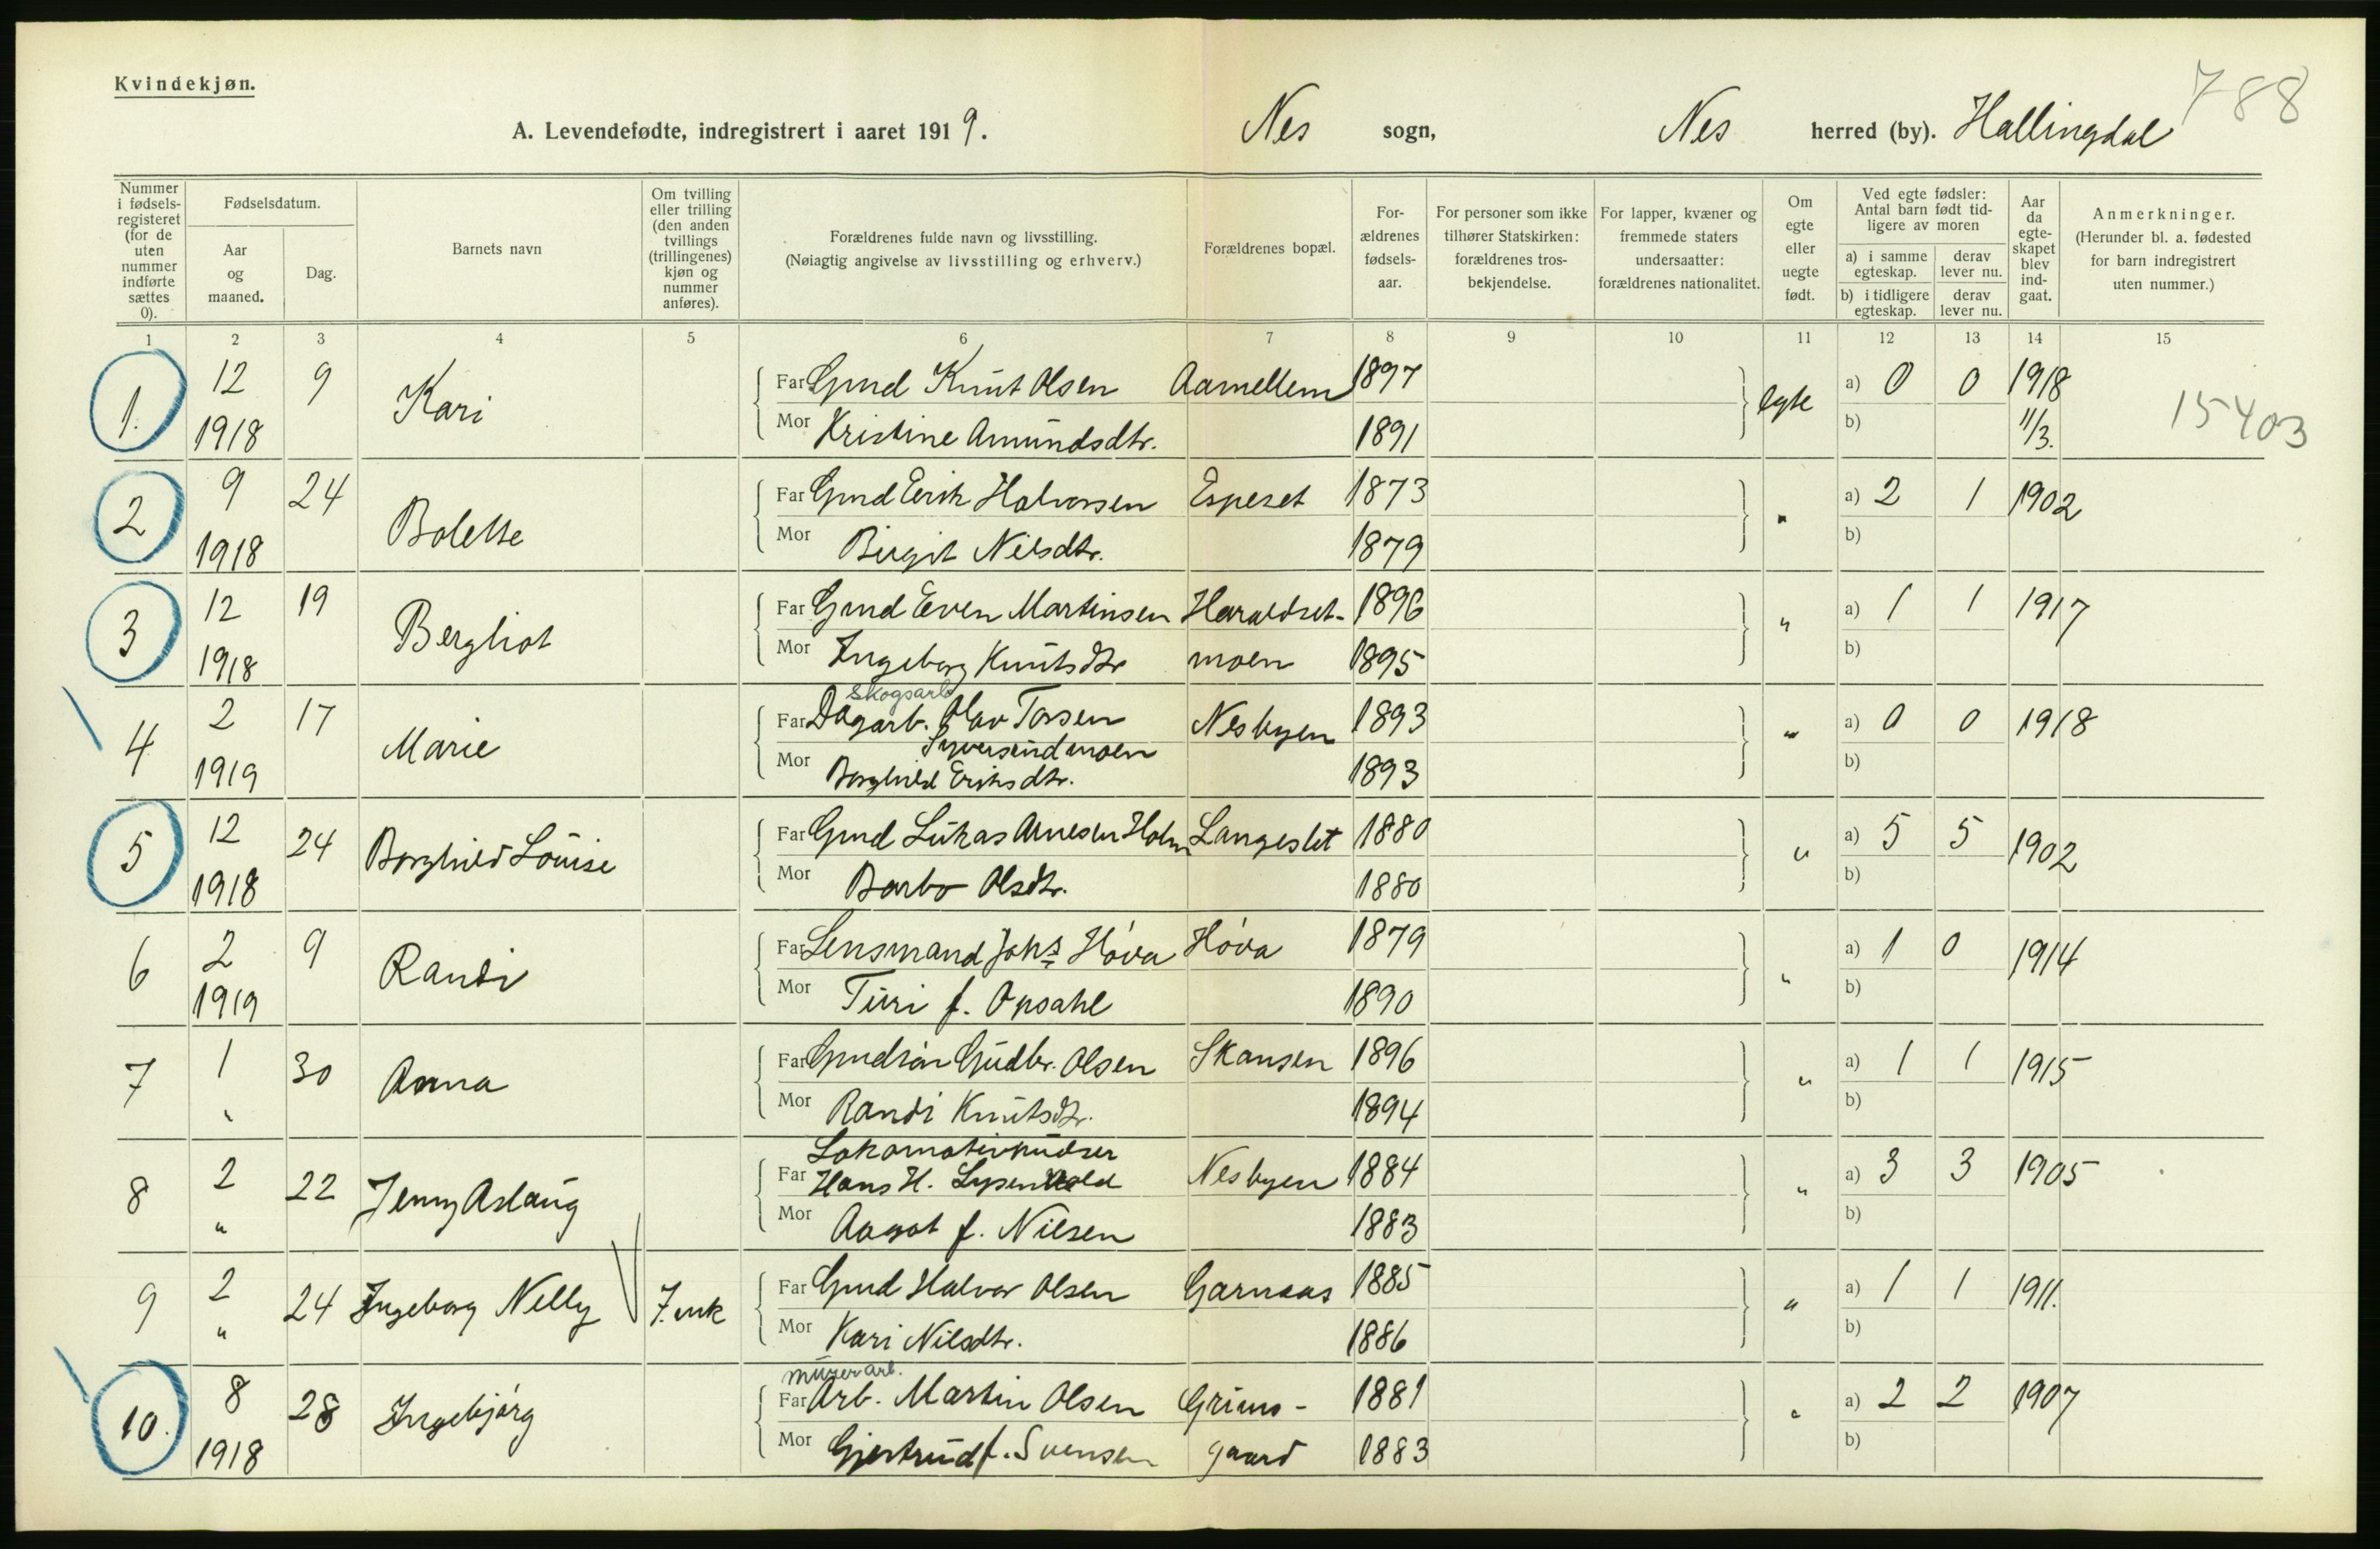 788
Kvindekjøn.
A. Levendefødte, indregistrert i aaret 1919. Nes sogn, Nes herred (by). Hallingdal
Nummer i fødsels-registeret (for de uten nummer indførte sættes 0). | Fødselsdatum. | Aar og maaned. | Dag. | Barnets navn | Om tvilling eller trilling (den anden tvillings (trillingenes) kjøn og nummer anføres). | Forældrenes fulde navn og livsstilling. (Nøiagtig angivelse av livsstilling og erhverv.) | Forældrenes bopæl. | For-ældrenes fødsels-aar. | For personer som ikke tilhører Statskirken: forældrenes tros-bekjendelse. | For lapper, kvæner og fremmede staters undersaatter: forældrenes nationalitet. | Om egte eller uegte født. | Ved egte fødsler: Antal barn født tid-ligere av moren | a) i samme egteskap. | derav lever nu. | b) i tidligere egteskap. | derav lever nu. | Aar da egte-skapet blev ind-gaat. | Anmerkninger. (Herunder bl. a. fødested for barn indregistrert uten nummer.)
1 2 3 4 5 6 7 8 9 10 11 12 13 14 15
1. 12 9 Kari Far Gmd Knut Olsen Aamellem 1897 egte a) 0 0 1918
1918 Mor Kristine Amundsdtr. 1891 b) 11/3. 15403
2 9 24 Bolette Far Gmd Erik Halvorsen Espeset 1873 " a) 2 1 1902
1918 Mor Birgit Nilsdtr. 1879 b)
3 12 19 Bergliot Far Gmd Even Martinsen Haraldset- 1896 " a) 1 1 1917
1918 Mor Ingeborg Knutsdtr moen 1895 b)
skogsarb
4 2 17 Marie Far Dagarb. Olav Torsen Nesbyen 1893 " a) 0 0 1918
Syversrudmoen
1919 Mor Borghild Eriksdtr. 1893 b)
5 12 24 Borghild Louise Far Gmd Lukas Arnesen Holm Langeslet 1880 " a) 5 5 1902
1918 Mor Barbo Olsdtr. 1880 b)
6 2 9 Randi Far Lensmand Johs Hóva Hóva 1879 " a) 1 0 1914
1919 Mor Turi f. Opsahl 1890 b)
7 1 30 Anna Far Gmdsön Gudbr. Olsen Skansen 1896 " a) 1 1 1915
" Mor Randi Knutsdtr. 1894 b)
Lokomotivpudser
8 2 22 Jenny Aslaug Far Hans H. Nesbyen 1884 " a) 3 3 1905
" Mor Aagot f. Nilsen 1883 b)
9 2 24 Ingeborg Nelly 7. mk Far Gmd Halvor Olsen Garnaas 1885 " a) 1 1 1911.
" Mor Kari Nilsdtr. 1886 b)
murerarb.
10. 8 28 Ingebjórg Far Arb. Martin Olsen Grims- 1881 " a) 2 2 1907
1918 Mor Gjertrud f. Svensen gaard 1883 b)